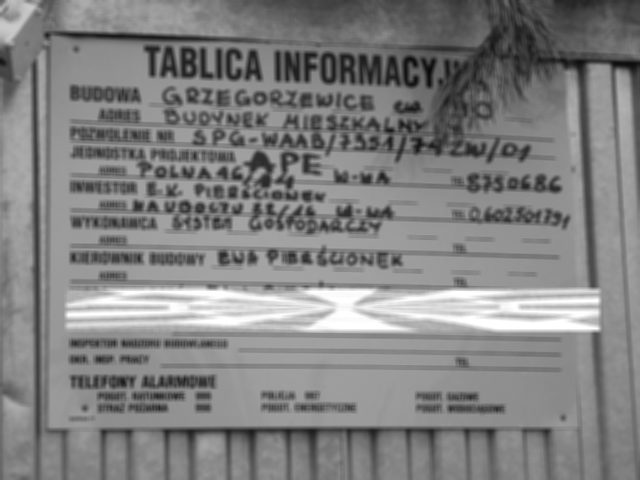 TABLICA INFORMACYJ
BUDOWA GRZEGORZEWICE
ADRES BUDYNEK MIESZKALNY
POZWOLENIE NR SPG-WAAB/7351/74ZW/01
JEDNOSTKA PROJEKTOWA APE
ADRES POLNA 46/ W-WA TEL 8750686
INWESTOR E.K. PIERŚCIONEK
ADRES 22/16 W-WA TEL 0,602501791
WYKONAWCA SYSTEM GOSPODARCZY
ADRES TEL
KIEROWNIK BUDOWY EWA PIERŚCIONEK
ADRES TEL
INSPEKTOR NADZORU BUDOWLANEGO
OKR. INSP. PRACY TEL
TELEFONY ALARMOWE
POGOT. RATUNKOWE 999 POLICJA 997 POGOT. GAZOWE
STRAŻ POŻARNA 998 POGOT. ENERGETYCZNE POGOT. WODOCIĄGOWE